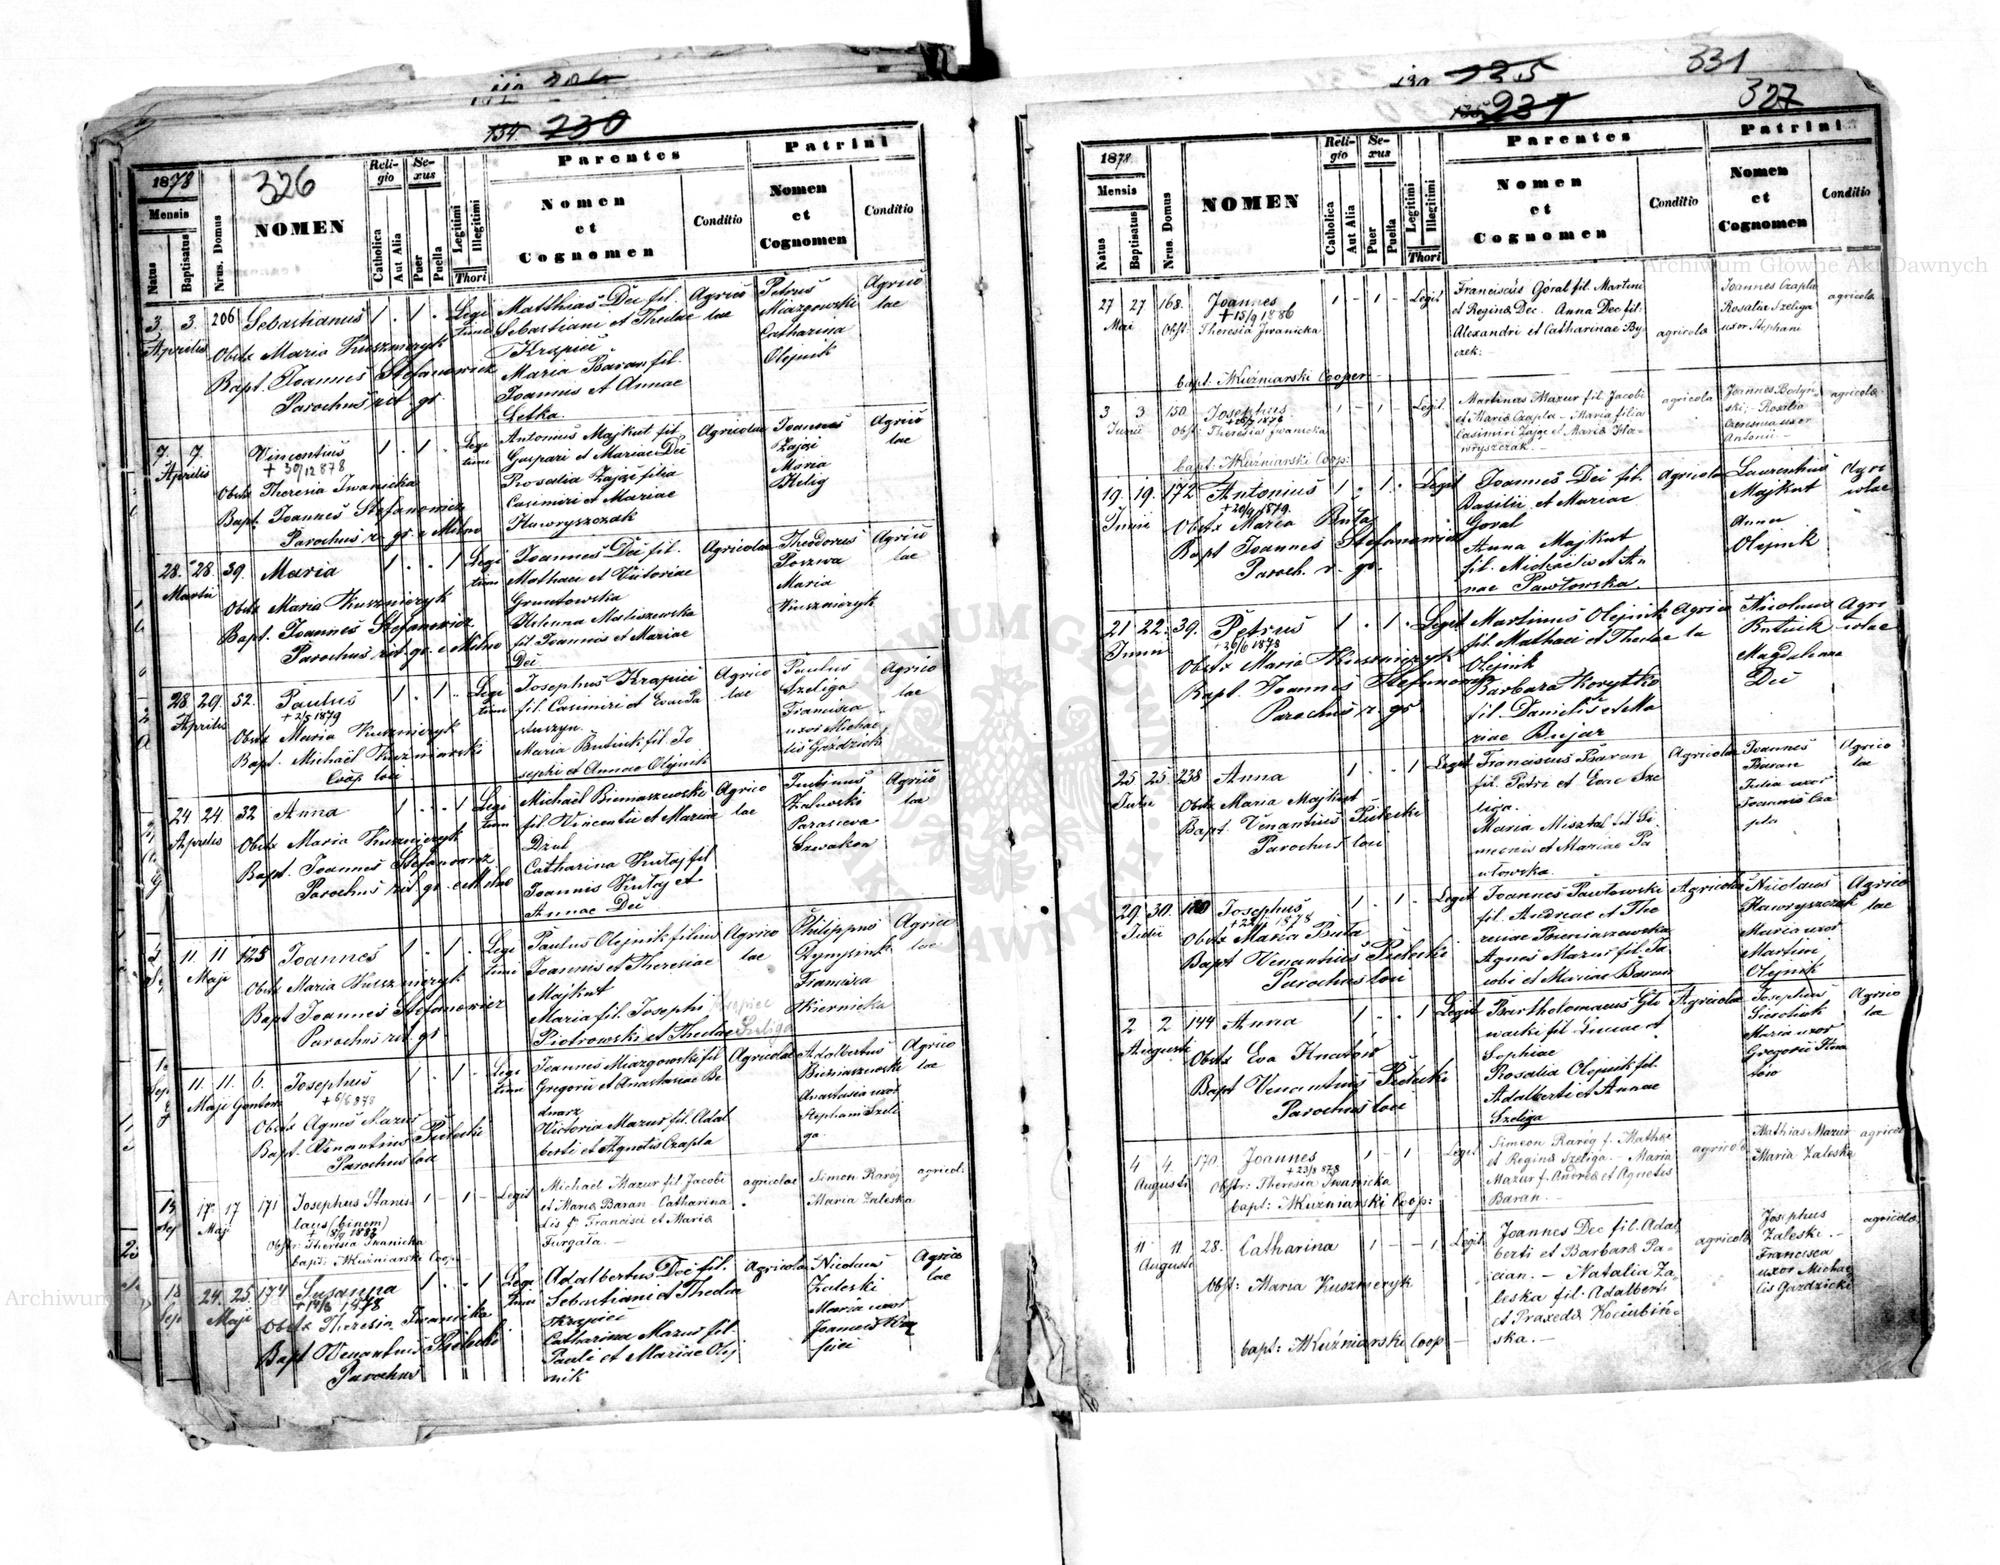 134. 230
326
1878
Mensis
Natus
Baptisatus
Nrus. Domus
NOMEN
Religio
Catholica
Aut Alia
Sexus
Puer
Puella
Legitimi
Illegitimi
Thori
Parentes
Nomen
et
Cognomen
Conditio
Patrini
Nomen
et
Cognomen
Conditio
3. 3. 206 Sebastianus 1 . 1 . Legi
Aprilis
timi
Obstx Maria Kuszmieryk
Bapt. Joannes Stefanowicz
Parochus rit. gr.
Matthias Dec fil.
Sebastiani et Theclae
Krąpiec
Maria Baran fil.
Joannis et Annae
Letka.
Agrico
lae
Petrus
Miazgowski
Catharina
Olejnik
Agrico
lae
7. 7. Vincentius 1 . 1 . Legi
Aprilis
+ 30/12 878
timi
Obstx Theresia Iwanicka
Bapt. Joannes Stefanowicz
Parochus r. gr. e Milno
Antonius Majkut fil.
Gaspari et Mariae Dec
Rosalia Zając filia
Casimiri et Mariae
Hawryszczak
Agricolae
Joannes
Zając
Maria
Agrico
lae
28. 28. 39. Maria 1 . . 1 Legi
Martii
timi
Obstx Maria Kuszmieryk
Bapt. Joannes Stefanowicz
Parochus rit. gr. e Milno
Joannes Dec fil.
Mathaei et Victoriae
Gruntowska
Helenna
fil. Joannis et Mariae
Dec
Agricolae
Theodorus
Poszwa
Maria
Kuszmieryk
Agrico
lae
28. 29. 52. Paulus 1 . 1 . Legi
Aprilis
+ 2/5 1879
timi
Obstx Maria Kuszmieryk
Bapt. Michaël Kuzmiarski
Coop loci
Josephus Krąpiec
fil. Casimiri et Evae
Maria Butiuk fil. Jo
sephi et Annae Olejnik
Agrico
lae
Paulus
Szeliga
Francisca
uxor Michae
lis Gaździcki
Agrico
lae
24 24. 32 Anna 1 . . 1 Legi
Aprilis
timi
Obstx Maria Kuszmieryk
Bapt. Joannes Stefanowicz
Parochus rit. gr. e Milno
Michaël Bieniaszewski
fil. Vincentii et Mariae
Catharina Kutaj fil
Joannis Kutaj et
Annae Dec
Agrico
lae
Justinus
Zalewski
Agrico
lae
11. 11 125 Joannes 1 . 1 . Legi
Maji
timi
Obstx Maria Kuszmieryk
Bapt Joannes Stefanowicz
Parochus rit. gr
Paulus Olejnik filius
Joannis et Theresiae
Majkut
Maria fil. Josephi
Piotrowski et Theclae Szeliga
Agrico
lae
Philippus
Francisca
Agrico
lae
11. 11. 6. Josephus 1 . 1 . Legi
Maji Gontowa
+ 6/6 878
timi
Obstx Agnes Mazur
Bapt. Venantius Pielecki
Parochus loci
Joannes Miazgowski fil
Gregorii et Anastasiae Be
dnarz
Victoria Mazur fil. Adal
berti et Agnetis Czapla
Agricolae
Adalbertus
Bieniaszewski
Anastasia uxor
Stephani Szeli
ga.
Agrico
lae
17 17 171 Josephus Stanis 1 - 1 - Legit
Maji
laus (binom)
Obstr: Theresia Iwanicka
bapt: MKuźniarski Coop
Michael Mazur fil. Jacobi
et Maria Baran. Catharina
f. Francisci et Maria
Furgała. -
agricolae
Simon Raróg
Maria Zaleska
agricol.
24. 25 174 Susanna 1 . . 1 Legi
Maji
+ 14/6 1878
timi
Obstx Theresia Iwanicka
Bapt Venantius Pielecki
Parochus
Adalbertus Dec fil.
Sebastiani et Theclae
Krąpiec
Catharina Mazur fil.
Pauli et Mariae Olej
nik
Agricolae
Nicolaus
Zaleski
Maria uxor
Joannis
Agrico
lae
135 231
331
327
1878.
Mensis
Natus
Baptisatus
Nrus. Domus
NOMEN
Religio
Catholica
Aut Alia
Sexus
Puer
Puella
Legitimi
Illegitimi
Thori
Parentes
Nomen
et
Cognomen
Conditio
Patrini
Nomen
et
Cognomen
Conditio
27 27 168. Joannes 1 - 1 - Legit
Mai
+ 15/9 1886
Obst: Theresia Iwanicka
bapt: MKuźniarski Cooper
Franciscus Góral fil. Martini
et Regina Dec. Anna Dec fil:
Alexandri et Catharinae By
czek. -
agricola
Joannes Czapla
Rosalia Szeliga
uxor Stephani
agricola
3 3 150. Josephus 1 - 1 - Legit.
Junii
Obst: Theresia Iwanicka
bapt: MKuźniarski Coop:
Martinus Mazur fil. Jacobi
et Maria Czapla - Maria filia
Casimiri Zając et Maria Ha-
wryszczak. -
agricola
Joannes Bodyń-
ski; - Rosalia
uxor
Antonii -
agricola
19. 19. 172 Antonius 1 . 1 . Legit
Junii
+ 20/9 1879.
Obstx Maria Buta
Bapt Joannes Stefanowicz
Paroch. r. gr.
Joannes Dec fil.
Basilii et Mariae
Goral
Anna Majkut
fil. Michaelis et An
nae Pawłowska
Agricola
Laurentius
Majkut
Anna
Olejnik
Agri
colae
21. 22. 39. Petrus 1 . 1 . Legit
Junii
+ 26/6 1878
Obstx Maria Kuszmieryk
Bapt. Joannes Stefanowicz
Parochus r. gr
Martinus Olejnik
fil. Mathaei et Theclae
Olejnik
Barbara Korytko
fil Danielis et Ma
riae Bujar
Agrico
la
Nicolaus
Butiuk
Magdalena
Dec
Agri
colae
25 25. 238 Anna 1 . . 1 Legit
Julii
Obstx Maria Majkut
Bapt. Venantius Pielecki
Parochus loci
Franciscus Baran
fil. Petri et Evae Sze
liga.
Maria Misztal fil Si
meonis et Mariae Pa
włowska.
Agricola
Joannes
Baran
Julia uxor
Joannis Cza
pla
Agrico
lae
29. 30. 180 Josephus 1 . 1 . Legit
Julii
Obstx Maria Buta
Bapt Venantius Pielecki
Parochus loci
Joannes Pawłowski
fil. Andreae et The
resiae Bieniaszewska
Agnes Mazur fil. Ja
cobi et Mariae Baran
Agricola
Nicolaus
Hawryszczak
Maria uxor
Martini
Olejnik
Agrico
lae
2 2 144 Anna 1 . . 1 Legit
Augusti
Obstx Eva
Bapt Venantius Pielecki
Parochus loci
Bartholomaeus Gło
wacki fil. Lucae et
Sophiae
Rosalia Olejnik fil.
Adalberti et Annae
Szeliga
Agricola
Josephus
Maria uxor
Gregorii
Agrico
lae
4 4. 170 Joannes 1 - 1 Legit
Augusti
+ 23/8 878
Obstr: Theresia Iwanicka
bapt: MKuźniarski Coop:
Simeon Raróg f. Mathaei
et Regina Szeliga. - Maria
Mazur f. Andrea et Agnetis
Baran. -
agricola
Mathias Mazur
Maria Zaleska
agricola
11 11 28. Catharina 1 - - 1. Legit.
Augusti
Obst: Maria Kuszmeryk
bapt: MKuźniarski Coop -
Joannes Dec fil. Adal
berti et Barbara Pa-
cian. - Natalia Za
leska fil. Adalberti
et Praxeda Kociubiń-
ska. -
agricola
Josephus
Zaleski. -
Francisca
uxor Michae
lis Gaździcki
agricola
Archiwum Główne Akt Dawnych